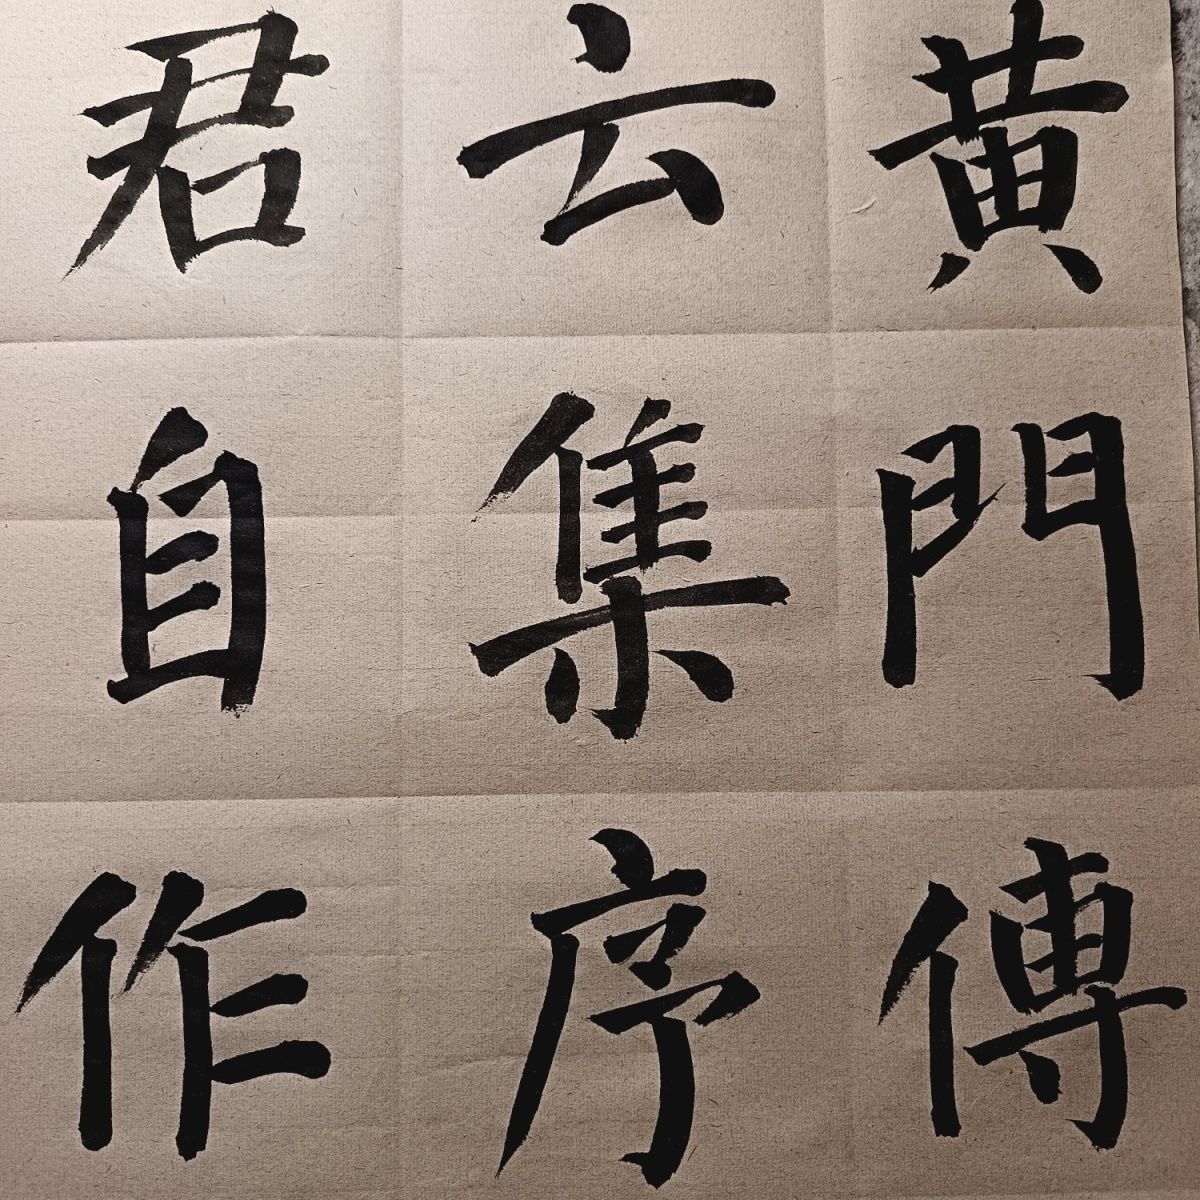 黄門傳
云集序
君自作